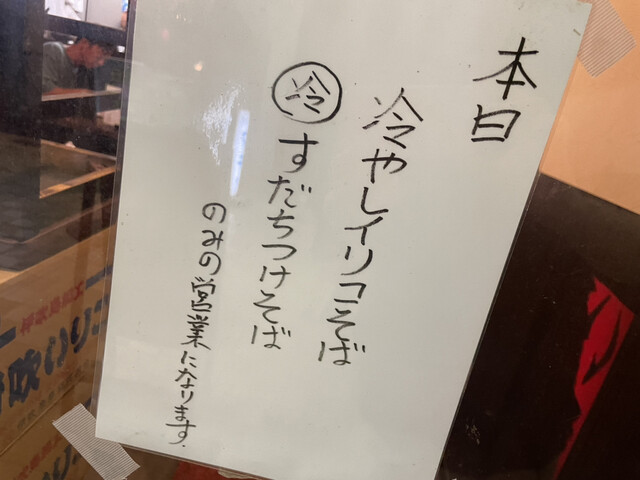 本日
冷やしイリコそば
冷 すだちつけそば
のみの営業になります.